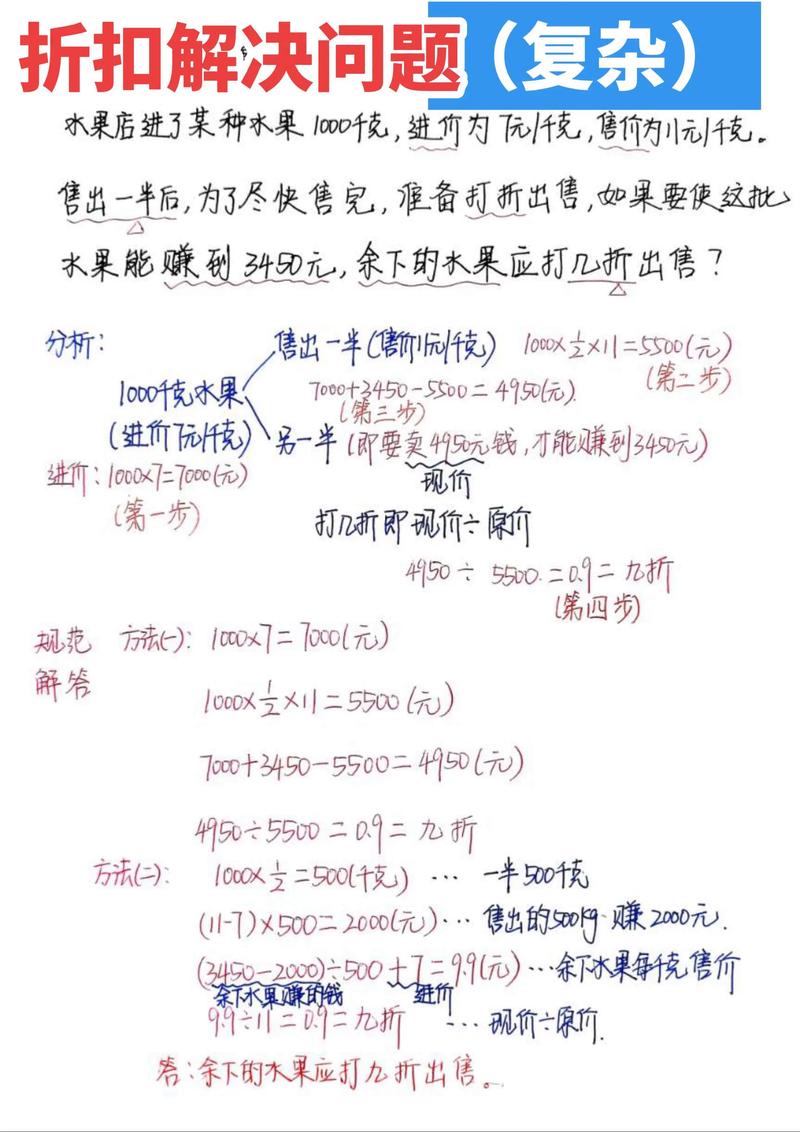 折扣解决问题（复杂）
水果店进了某种水果1000千克,进价为7元/千克,售价为11元/千克。
售出一半后,为了尽快售完,准备打折出售,如果要使这批
水果能赚到3450元,余下的水果应打几折出售?
分析:
售出一半(售价11元/千克) 1000×1/2×11=5500(元)
(第二步)
1000千克水果
(进价7元/千克)
7000+3450-5500=4950(元).
(第三步)
另一半(即要卖4950元钱,才能赚到3450元)
现价
进价:1000×7=7000(元)
(第一步)
打几折即现价÷原价
4950÷5500.=0.9=九折
(第四步)
规范解答 方法(一): 1000×7=7000(元)
1000×1/2×11=5500(元)
7000+3450-5500=4950(元)
4950÷5500=0.9=九折
方法(二): 1000×1/2=500(千克) … 一半500千克
(11-7)×500=2000(元)… 售出的500kg·赚2000元.
(3450-2000)÷500+7=9.9(元)…余下水果每千克售价
余下水果赚的钱 进价
9.9÷11=0.9=九折 …现价÷原价.
答:余下的水果应打九折出售。